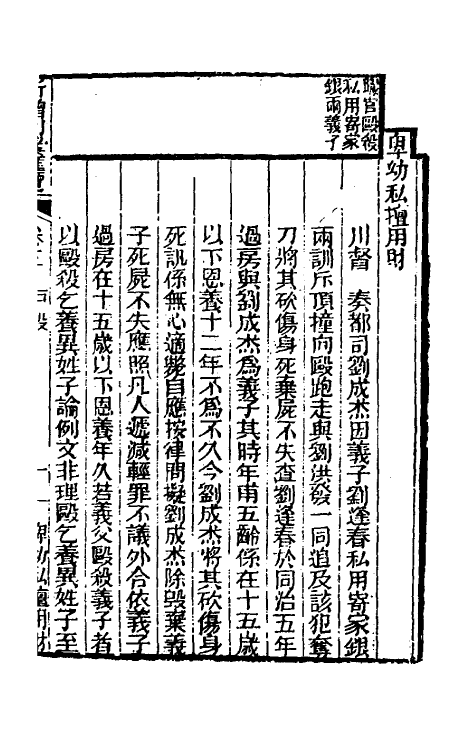 卑幼私擅用財
職官毆役
私用寄家
銀兩義子
川督　奏都司劉成杰因義子劉逢春私用寄家銀
兩訓斥頂撞向毆跑走與劉洪發一同追及該犯奪
刀將其砍傷身死棄屍不失查劉逢春於同治五年
過房與劉成杰爲義子其時年甫五齡係在十五歲
以下恩養十二年不爲不久今劉成杰將其砍傷身
死訊係無心適斃自應按律問擬劉成杰除毀棄義
子死屍不失應照凡人遞減輕罪不議外合依義子
過房在十五歲以下恩養年久若義父毆殺義子者
以毆殺乞養異姓子論例文非理毆乞養異姓子至
卑幼私擅用財